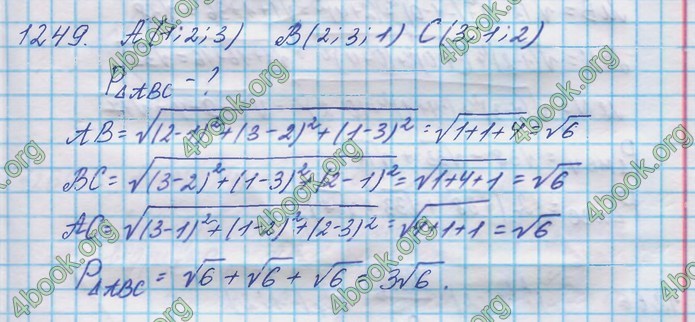 1249. A(1;2;3) B(2;3;1) C(3;1;2)
P△ABC - ?
AB = √((2-1)²+(3-2)²+(1-3)²) = √(1+1+4) = √6
BC = √((3-2)²+(1-3)²+(2-1)²) = √(1+4+1) = √6
AC = √((3-1)²+(1-2)²+(2-3)²) = √(4+1+1) = √6
P△ABC = √6 + √6 + √6 = 3√6.
4book.org
4book.org
4book.org
4book.org
4book.org
4book.org
4book.org
4book.org
4book.org